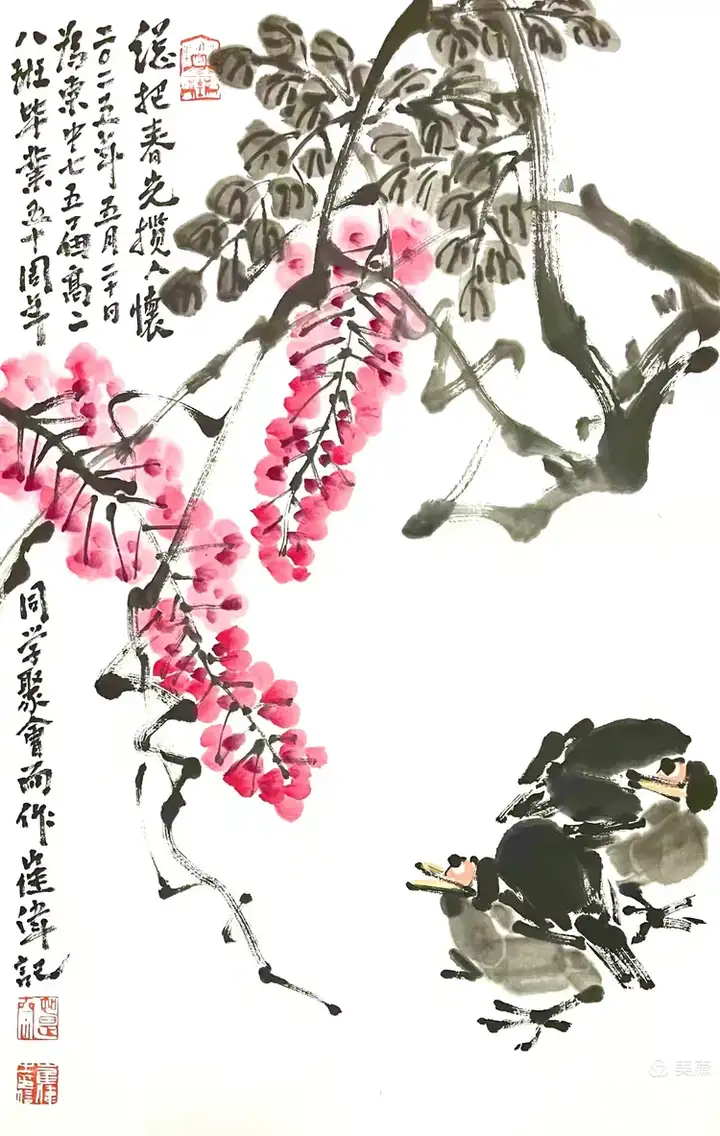 總把春光揽入懷
二〇二五年五月二十日
為東中七五届高二
八班毕業五十周年
同学聚會而作 崔偉記
美篇